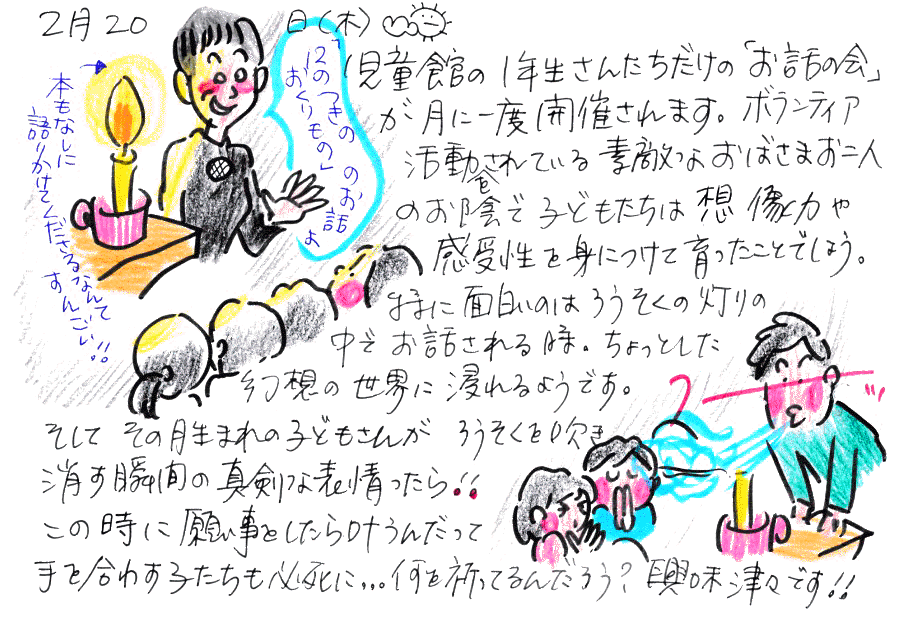 2月20日(木)
児童館の1年生さんたちだけの「お話の会」
が月に一度開催されます。ボランティア
活動をされている素敵なおばさまお二人
のお陰で子どもたちは想像力や
感受性を身につけて育ったことでしょう。
特に面白いのはろうそくの灯りの
中でお話される時。ちょっとした
幻想の世界に浸れるようです。
そしてその月生まれの子どもさんがろうそくを吹き
消す瞬間の真剣な表情ったら!!
この時に願い事をしたら叶うんだって
手を合わす子たちも必死に…何を祈ってるんだろう?興味津々です!!
「12のつきの
おくりもの」
のお話よ
本もなしに
語りかけてくださるなんて
すんごい!!